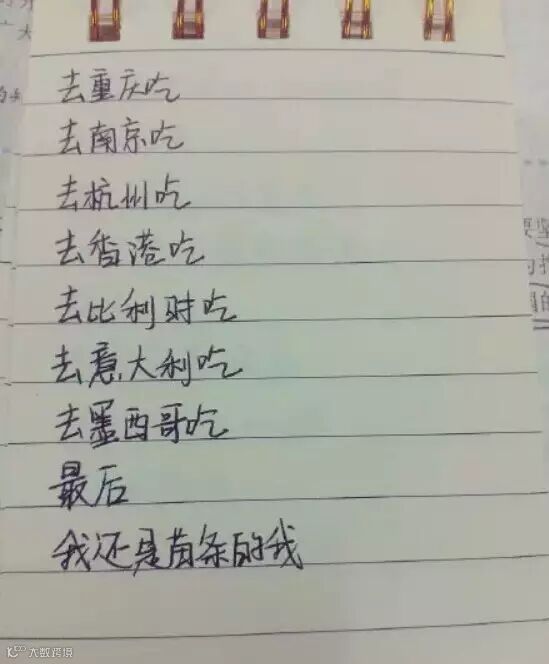 去重庆吃
去南京吃
去杭州吃
去香港吃
去比利时吃
去意大利吃
去墨西哥吃
最后
我还是苗条的我
大数跨境